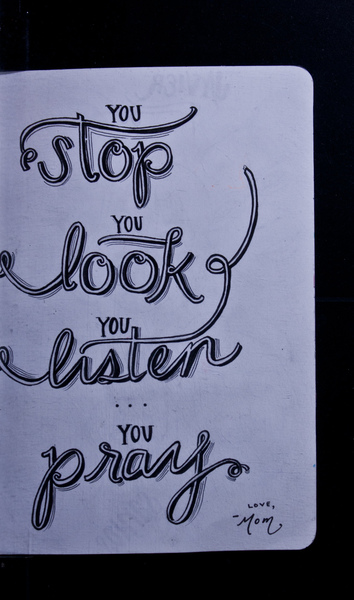 YOU
stop
YOU
look
YOU
listen
...
YOU
pray
LOVE,
-Mom